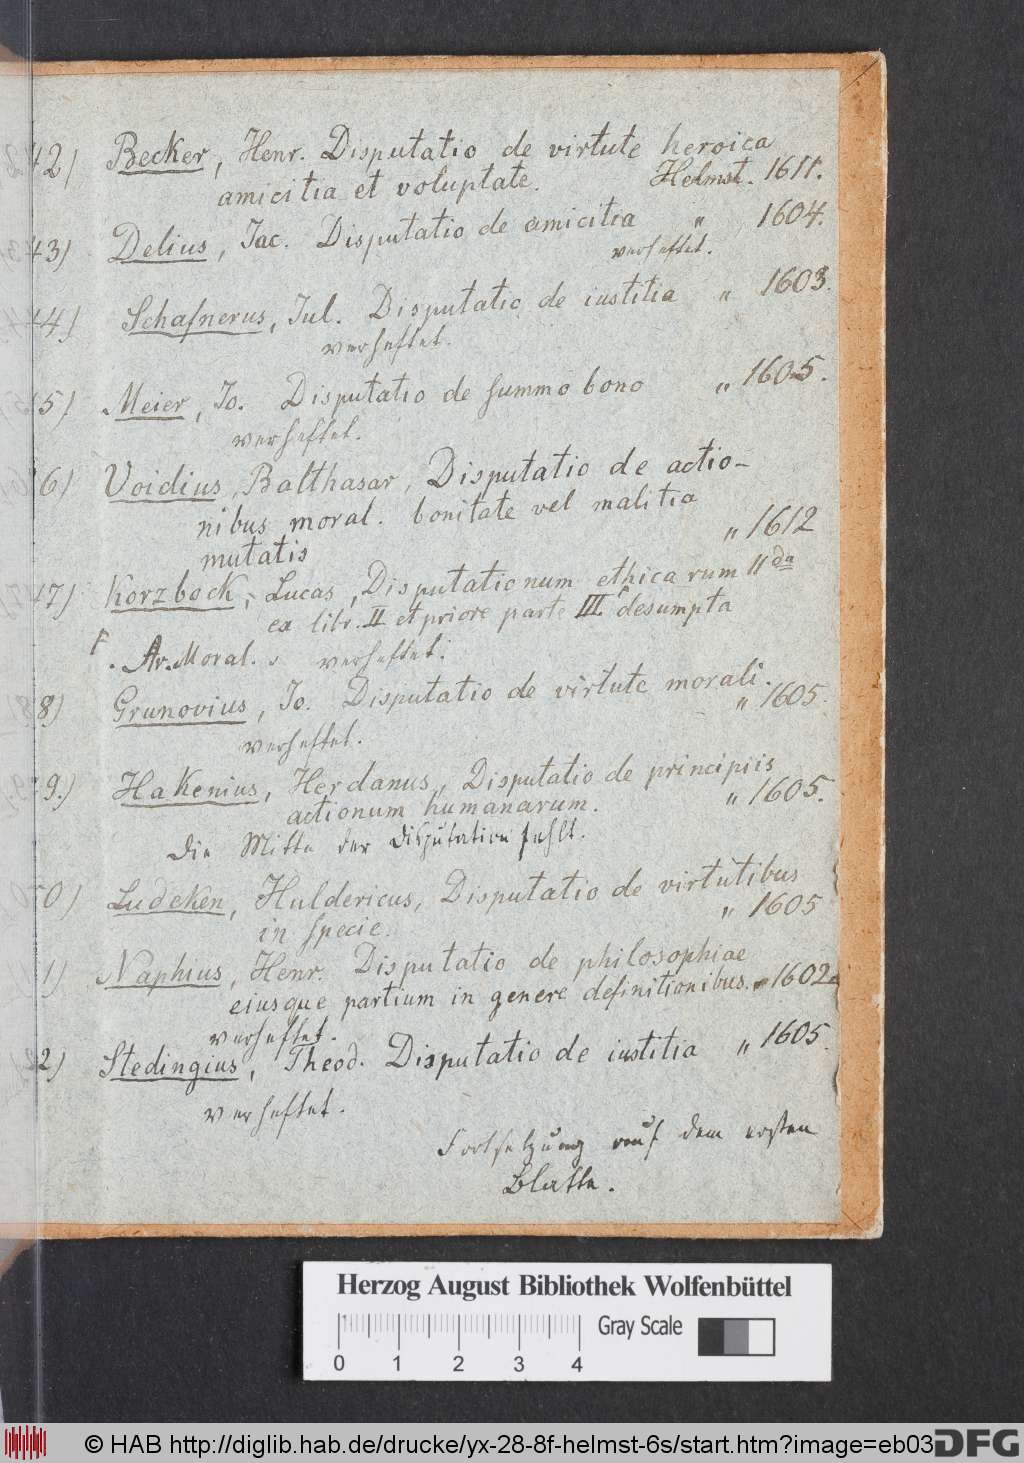 42) Becker, Henr. Disputatio de virtute heroica
amicitia et voluptate. Helmst. 1611.
43) Delius, Iac. Disputatio de amicitia " 1604.
verheftet.
44) Schafnerus, Iul. Disputatio de iustitia " 1603.
verheftet.
5) Meier, Io. Disputatio de summo bono " 1605.
verheftet.
6) Voidius, Balthasar, Disputatio de actio-
nibus moral. bonitate vel malitia
mutatis " 1612
47) Korzbock, Lucas, Disputationum ethicarum 11da
ex libr. II et priore parte III desumpta
Ar. Moral. verheftet.
8) Grunovius, Io. Disputatio de virtute morali.
" 1605.
verheftet.
9.) Hakenius, Herdanus, Disputatio de principiis
actionum humanarum. " 1605.
Die Mitte der Disputation fehlt.
50) Ludeken, Huldericus, Disputatio de virtutibus
in specie. " 1605
1) Naphius, Henr. Disputatio de philosophiae
eiusque partium in genere definitionibus. " 1602
verheftet.
2) Stedingius, Theod. Disputatio de iustitia " 1605.
verheftet.
Fortsetzung auf dem ersten
Blatte.
Herzog August Bibliothek Wolfenbüttel
Gray Scale
0 1 2 3 4
© HAB http://diglib.hab.de/drucke/yx-28-8f-helmst-6s/start.htm?image=eb03
DFG